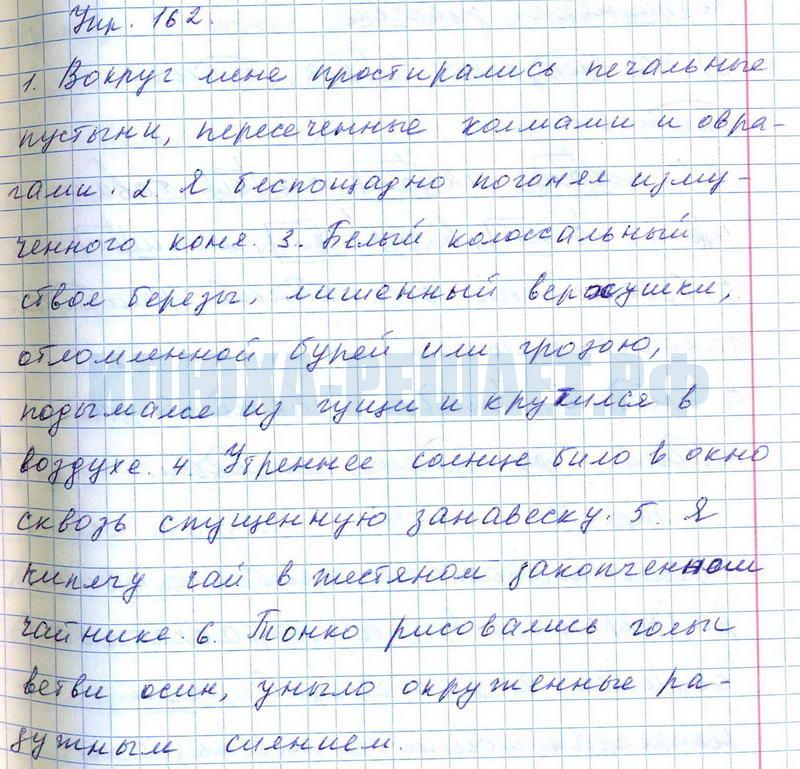 Упр. 162.
1. Вокруг мене простирались печальные
пустыни, пересеченные холмами и овра-
гами. 2. Я беспощадно погонял изму-
ченного коня. 3. Белый колоссальный
ствол березы, лишенный верхушки,
отломленной бурей или грозою,
ИЛЮХА-РЕШАЕТ.РФ
подымался из гущи и крутился в
воздухе. 4. Утреннее солнце било в окно
сквозь спущенную занавеску. 5. Я
кипячу чай в жестяном закопченном
чайнике. 6. Тонко рисовались голые
ветви осин, уныло окруженные ра-
дужным сиянием.